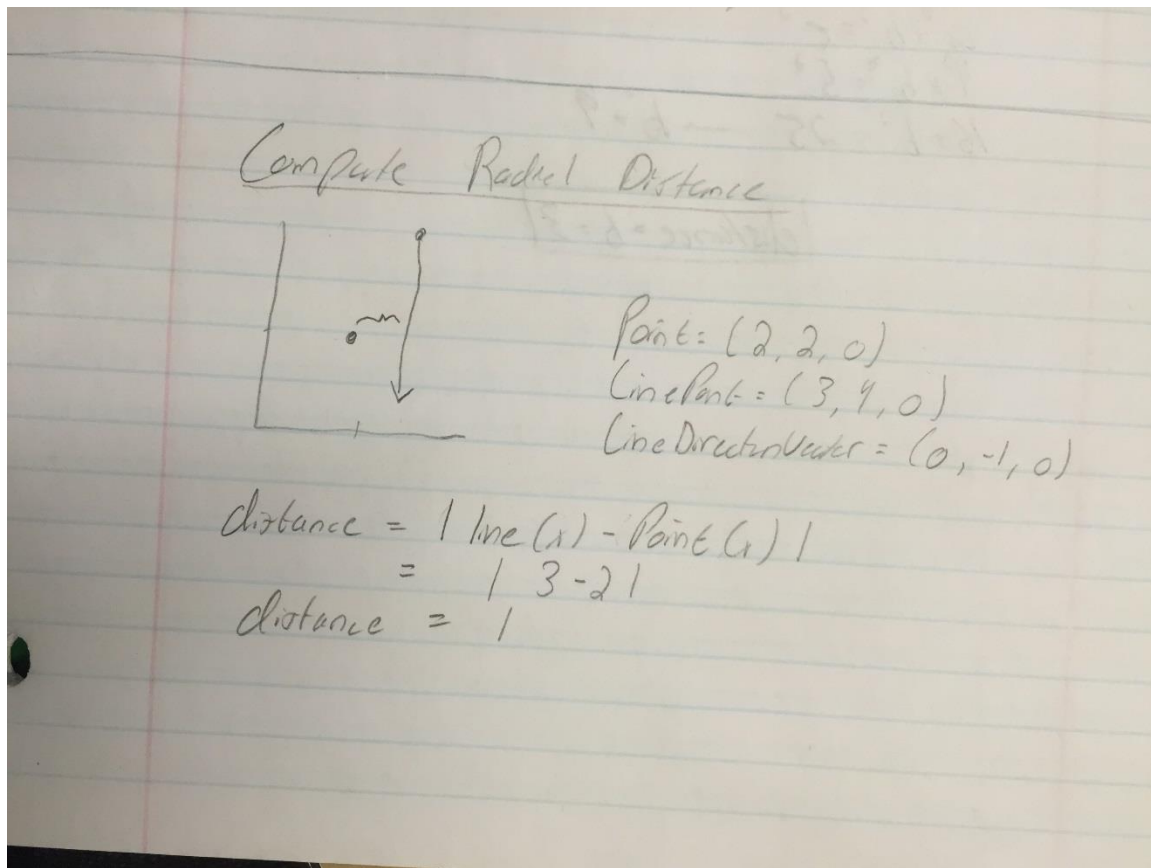 Compute Radial Distance
Point = (2, 2, 0)
LinePoint = (3, 4, 0)
LineDirectionVector = (0, -1, 0)
distance = | line(x) - Point(x) |
= | 3 - 2 |
distance = 1